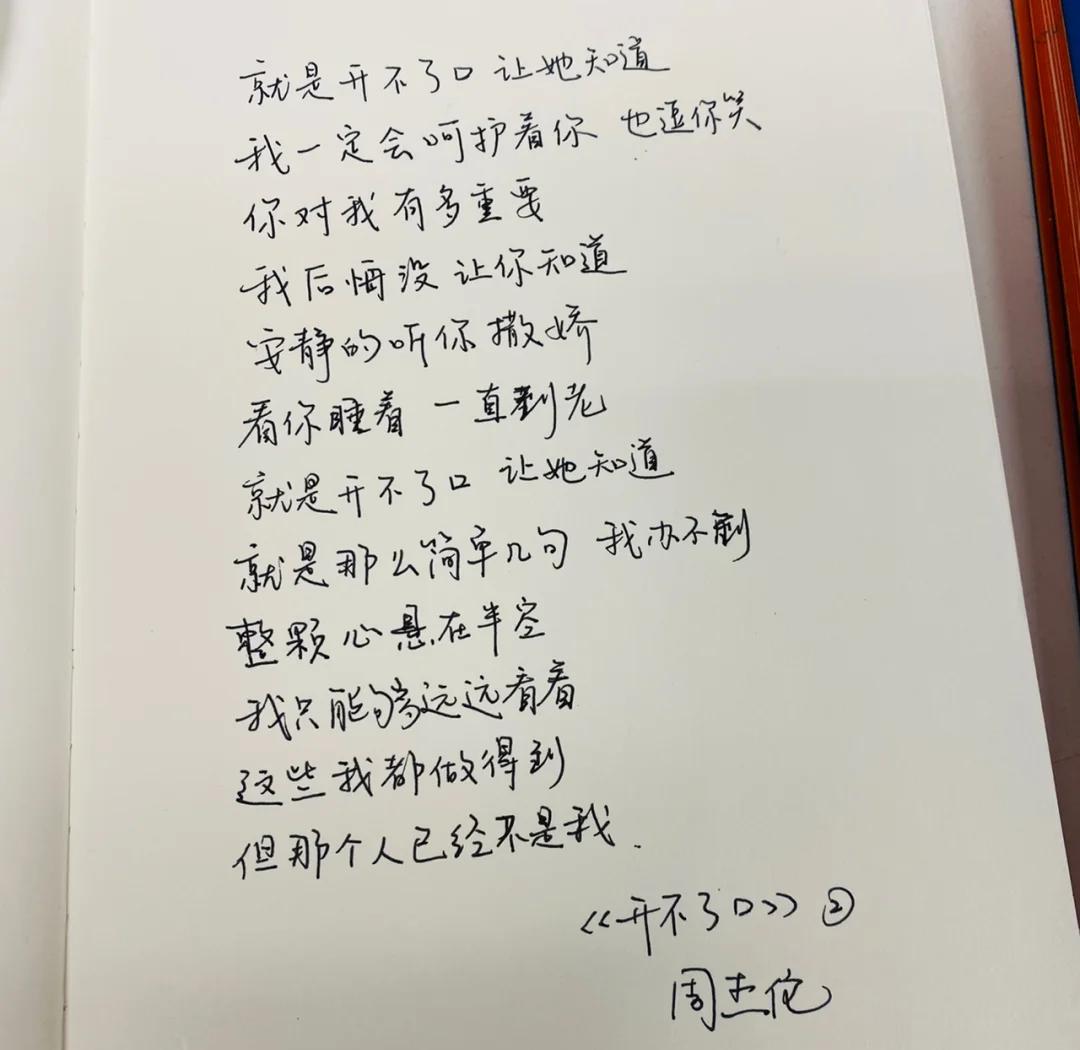 就是开不了口 让她知道
我一定会呵护着你 也逗你笑
你对我有多重要
我后悔没让你知道
安静的听你撒娇
看你睡着 一直到老
就是开不了口 让她知道
就是那么简单几句 我办不到
整颗心悬在半空
我只能够远远看着
这些我都做得到
但那个人已经不是我.
<<开不了口>> ②
周杰伦